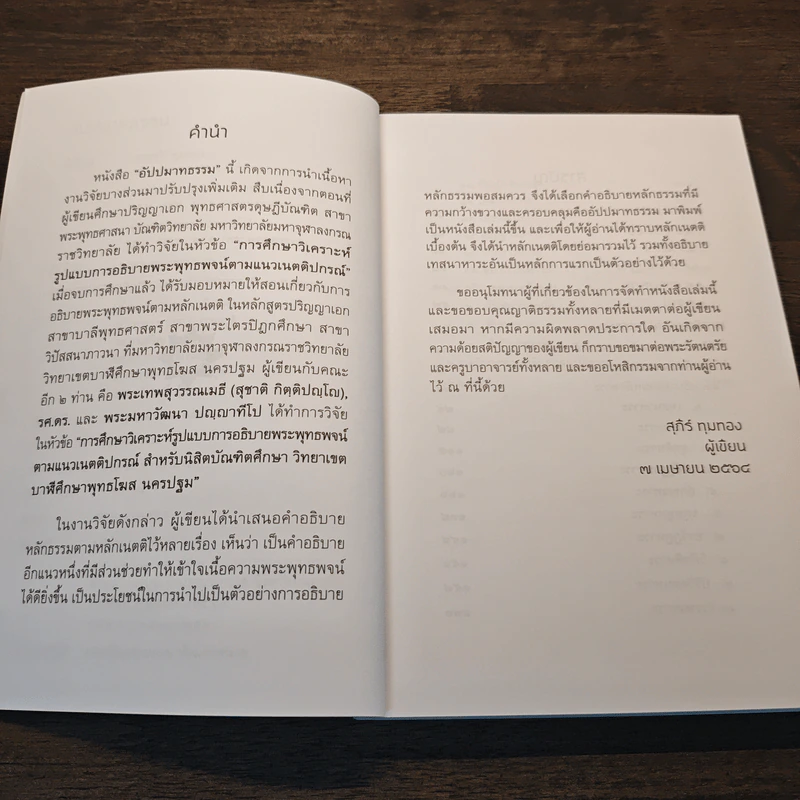 คำนำ
หนังสือ “อัปปมาทธรรม” นี้ เกิดจากการนำเนื้อหา
งานวิจัยบางส่วนมาปรับปรุงเพิ่มเติม สืบเนื่องจากตอนที่
ผู้เขียนศึกษาปริญญาเอก พุทธศาสตรดุษฎีบัณฑิต สาขา
พระพุทธศาสนา บัณฑิตวิทยาลัย มหาวิทยาลัยมหาจุฬาลงกรณ
ราชวิทยาลัย ได้ทำวิจัยในหัวข้อ “การศึกษาวิเคราะห์
รูปแบบการอธิบายพระพุทธพจน์ตามแนวเนตติปกรณ์”
เมื่อจบการศึกษาแล้ว ได้รับมอบหมายให้สอนเกี่ยวกับการ
อธิบายพระพุทธพจน์ตามหลักเนตติ ในหลักสูตรปริญญาเอก
สาขาบาลีพุทธศาสตร์ สาขาพระไตรปิฎกศึกษา สาขา
วิปัสสนาภาวนา ที่มหาวิทยาลัยมหาจุฬาลงกรณราชวิทยาลัย
วิทยาเขตบาฬีศึกษาพุทธโฆส นครปฐม ผู้เขียนกับคณะ
อีก ๒ ท่าน คือ พระเทพสุวรรณเมธี (สุชาติ กิตฺติปญฺโญ),
รศ.ดร. และ พระมหาวัฒนา ปญฺญาทีโป ได้ทำการวิจัย
ในหัวข้อ “การศึกษาวิเคราะห์รูปแบบการอธิบายพระพุทธพจน์
ตามแนวเนตติปกรณ์ สำหรับนิสิตบัณฑิตศึกษา วิทยาเขต
บาฬีศึกษาพุทธโฆส นครปฐม”
ในงานวิจัยดังกล่าว ผู้เขียนได้นำเสนอคำอธิบาย
หลักธรรมตามหลักเนตติไว้หลายเรื่อง เห็นว่า เป็นคำอธิบาย
อีกแนวหนึ่งที่มีส่วนช่วยทำให้เข้าใจเนื้อความพระพุทธพจน์
ได้ดียิ่งขึ้น เป็นประโยชน์ในการนำไปเป็นตัวอย่างการอธิบาย
หลักธรรมพอสมควร จึงได้เลือกคำอธิบายหลักธรรมที่มี
ความกว้างขวางและครอบคลุมคืออัปปมาทธรรม มาพิมพ์
เป็นหนังสือเล่มนี้ขึ้น และเพื่อให้ผู้อ่านได้ทราบหลักเนตติ
เบื้องต้น จึงได้นำหลักเนตติโดยย่อมารวมไว้ รวมทั้งอธิบาย
เทสนาหาระอันเป็นหลักการแรกเป็นตัวอย่างไว้ด้วย
ขออนุโมทนาผู้ที่เกี่ยวข้องในการจัดทำหนังสือเล่มนี้
และขอขอบคุณญาติธรรมทั้งหลายที่มีเมตตาต่อผู้เขียน
เสมอมา หากมีความผิดพลาดประการใด อันเกิดจาก
ความด้อยสติปัญญาของผู้เขียน ก็กราบขอขมาต่อพระรัตนตรัย
และครูบาอาจารย์ทั้งหลาย และขออโหสิกรรมจากท่านผู้อ่าน
ไว้ ณ ที่นี้ด้วย
สุภีร์ ทุมทอง
ผู้เขียน
๗ เมษายน ๒๕๖๔